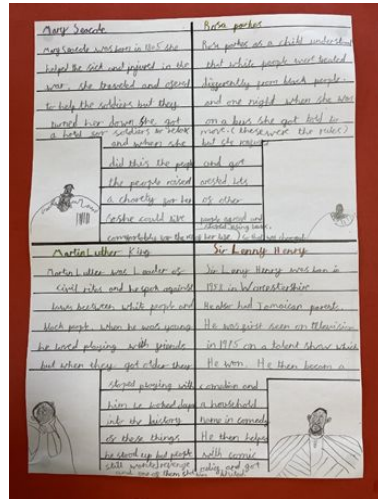 Mary Seacole
Mary Seacole was born in 1805 she
helped the sick and injured in the
war, she traveled and offered
to help the soldiers but they
turned her down she got
a hotel for soldiers to relax
and when she
did this the people
the people raised
a charity for her
so she could live
comfortably for the rest of her life
Rosa parkes
Rosa parkes as a child understood
that white people were treated
differently from black people.
and one night when she was
on a bus she got told to
move. (these were the rules)
but she refused
and got
arested lots
of other
people agreed and
stopped using buses,
so that was changed
Martin Luther King
Martin Luther was Leader of
civil rites and he spoke against
laws between white people and
black people. when he was young
he loved playing with friends
but when they got older they
stoped playing with
him he looked
into the history
of these things
he stood up but people
still wanted revenge
and one of them shot
Sir Lenny Henry
Sir Leny Henry was born in
1958 in Worcestershire
He also had Jamaican parents.
He was first seen on television
in 1975 on a talent show which
He won. He then became a
comedian and
a household
name in comedy
He then helps
with comic
relief, and got